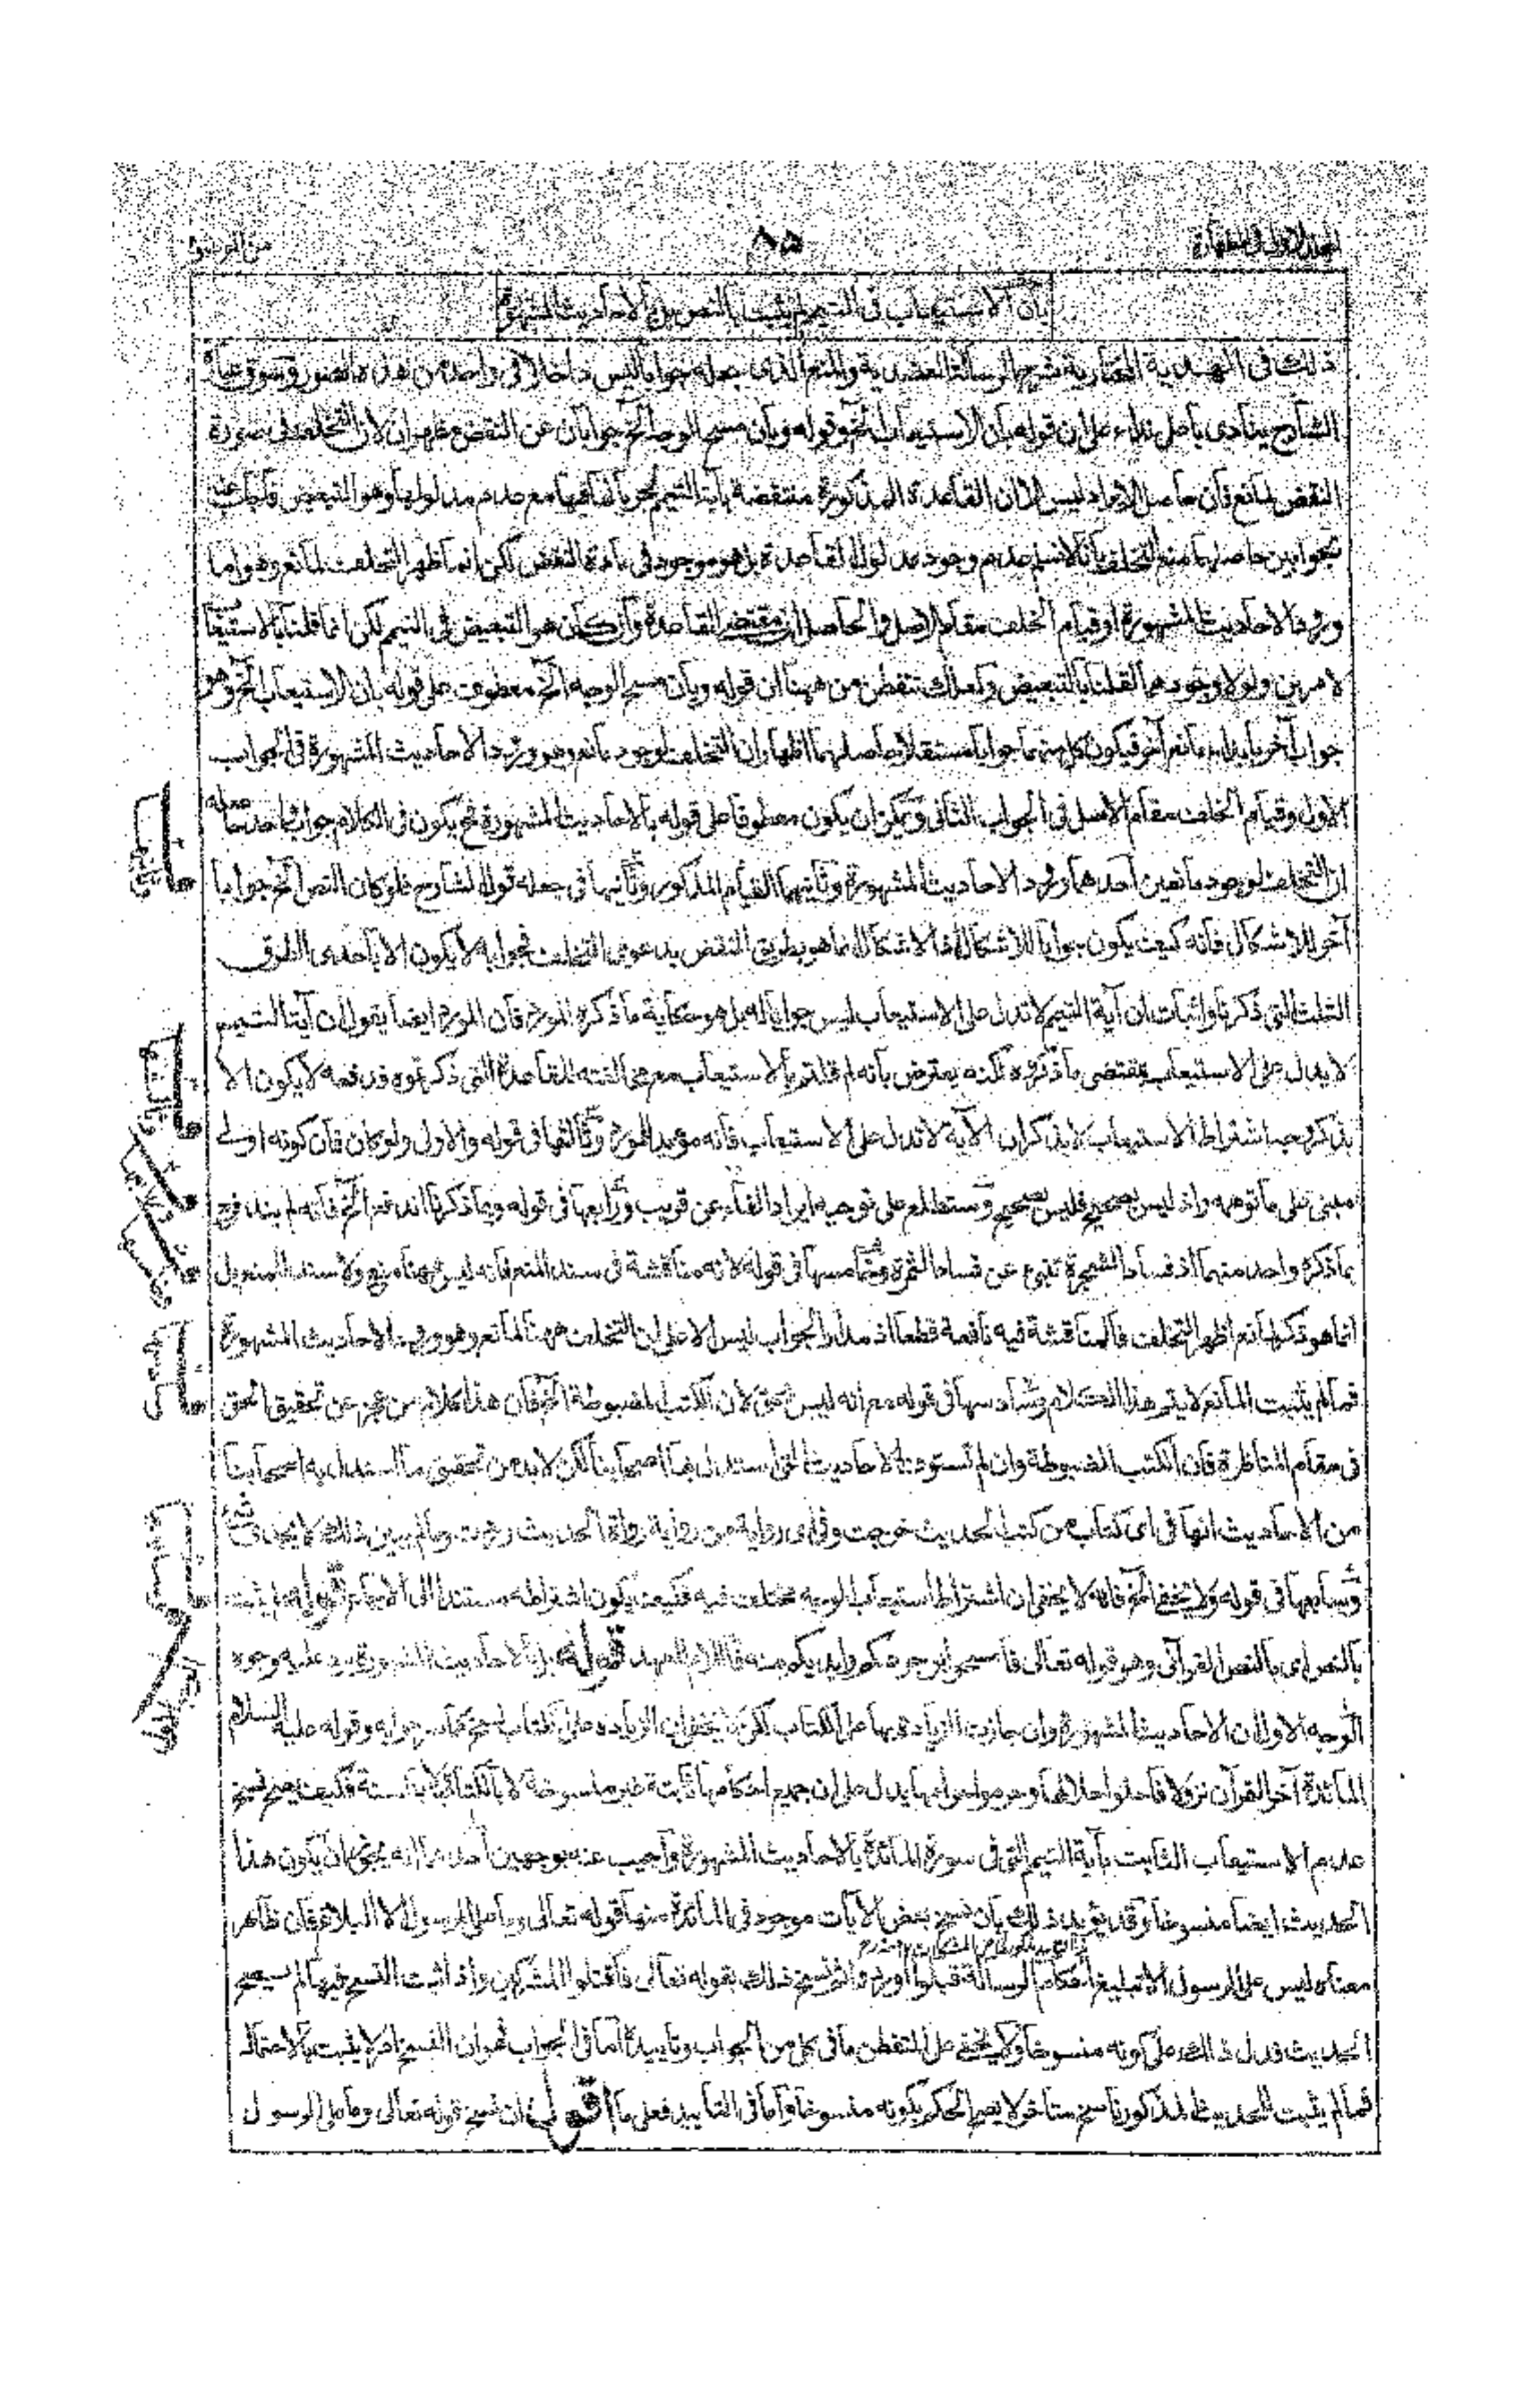 ٨٥
بأن الاستيعاب في التيمم لم يثبت بالنص بل بالاحاديث المشهورة
ذلك في شرح الرسالة العضدية والمنع الذي جعله جوابا ليس داخلا في واحد من هذه الصور وسوق
الشارح ينادي باعلى نداء على ان قوله بان الاستيعاب الخ وقوله وبان مسح الوجه الخ جوابان عن النقض لان التخلف في صورة
النقض لمانع فان حاصل الايراد ليس الا ان القاعدة المذكورة منتقضة بآية التيمم مع عدم مدلولها وهو التبعيض
بجوابين حاصلهما منع التخلف بانا لا نسلم عدم وجود مدلول القاعدة بل هو موجود في مادة النقض لكن انما ظهر التخلف لمانع وهو اما
ورود الاحاديث المشهورة او قيام الخلف مقام الاصل والحاصل ان مقتضى القاعدة وان كان هو التبعيض في التيمم لكن انما قلنا بالاستيعاب
لامرين ولولا وجودهما لقلنا بالتبعيض ولعلك تتفطن من ههنا ان قوله وبان مسح الوجه الخ معطوف على قوله بان الاستيعاب الخ وهو
جواب آخر بابداء مانع آخر فيكون كل منهما جوابا مستقلا حاصلهما اظهار ان التخلف لوجود مانع وهو ورود الاحاديث المشهورة في الجواب
الاول وقيام الخلف مقام الاصل في الجواب الثاني ويمكن ان يكون معطوفا على قوله بالاحاديث المشهورة فح يكون في الكلام جواب واحد حاصله
ان التخلف لوجود مانعين احدهما ورود الاحاديث المشهورة وثانيهما القيام المذكور وثانيها في جعله قول الشارح فلو كان النص الخ جوابا
آخر للاشكال فانه كيف يكون جوابا للاشكال اذ الاشكال انما هو بطريق النقض بدعوى التخلف فجوابه لا يكون الا باحدى الطرق
الثلث التي ذكرنا واثبات ان آية التيمم لا تدل على الاستيعاب ليس جوابا له بل هو حكاية ما ذكره المورد فان المورد ايضا يقول ان آية التيمم
لا يدل على الاستيعاب بمقتضى ما ذكروه لكنه يعترض بانه لم قلتم بالاستيعاب مع مخالفته للقاعدة التي ذكرتموه فدفعه لا يكون الا
بذكر وجه اشتراط الاستيعاب لا بذكر ان الآية لا تدل على الاستيعاب فانه مؤيد للمورد وثالثها في قوله والاولى ولو كان فان كونه اولى
مبني على ما توهمه واذ ليس بصحيح فليس بصحيح وستطلع على توجيه ايراد الفاء عن قريب ورابعها في قوله وبما ذكرنا اندفع الخ فانه لم يندفع
بما ذكره واحد منهما اذ فساد الشجرة تنبئ عن فساد الثمرة وخامسها في قوله لانه مناقشة في سند المنع فانه ليس ههنا منع ولا سند المنع بل
انما هو ذكر لمانع اظهر التخلف فالمناقشة فيه نافعة قطعا اذ مدار الجواب ليس الا على ان التخلف ههنا لمانع وهو ورود الاحاديث المشهورة
فما لم يثبت المانع لا يتم هذا الكلام وسادسها في قوله مع انه ليس بحق لان الكتب المضبوطة الخ فان هذا كلام من عجز عن تحقيق الحق
في مقام المناظرة فان الكتب المضبوطة وان لم تستوعب الاحاديث التي استدل بها اصحابنا لكن لا بد من تحقيق ما استدل به اصحابنا
من الاحاديث انها في اي كتاب من كتب الحديث خرجت وفي اي رواية من رواية رواة الحديث رويت وما لم يبين ذلك لا يجدي
وسابعها في قوله ولا يخفى الخ فانه لا يخفى ان اشتراط استيعاب الوجه مختلف فيه فكيف يكون اشتراطه مستندا الى الاجماع قوله لم يثبت
بالنص اي بالنص القرآني وهو قوله تعالى فامسحوا بوجوهكم وايديكم منه فاللام للعهد قوله بل بالاحاديث المشهورة يرد عليه وجوه
الوجه الاول ان الاحاديث المشهورة وان جازت الزيادة بها على الكتاب لكن لا يخفى ان الزيادة على الكتاب نسخ وقوله عليه السلام
المائدة آخر القرآن نزولا فاحلوا حلالها وحرموا حرامها يدل على ان جميع احكامها ثابتة غير منسوخة لا بالكتاب ولا بالسنة فكيف يصح نسخ
عدم الاستيعاب الثابت بآية التيمم التي في سورة المائدة بالاحاديث المشهورة واجيب عنه بوجهين احدهما انه يجوز ان يكون هذا
الحديث ايضا منسوخا وقد يؤيد ذلك بان نسخ بعض الآيات موجود في المائدة منها قوله تعالى وما على الرسول الا البلاغ فان ظاهر
معناه ليس على الرسول الا تبليغ احكام الرسالة قبلوا او ردوا ثم نسخ ذلك بقوله تعالى فاقتلوا المشركين واذا ثبت النسخ فيها لم يصح
الحديث فدل ذلك على كونه منسوخا ولا يخفى على المتفطن ما في كل من الجواب وتاييده اما في الجواب فهو ان النسخ امر لا يثبت بالاحتمال
فما لم يثبت للحديث المذكور ناسخ متاخر لا يصح الحكم بكونه منسوخا واما في التاييد فعلى ما اقول ان نسخ قوله تعالى وما على الرسول